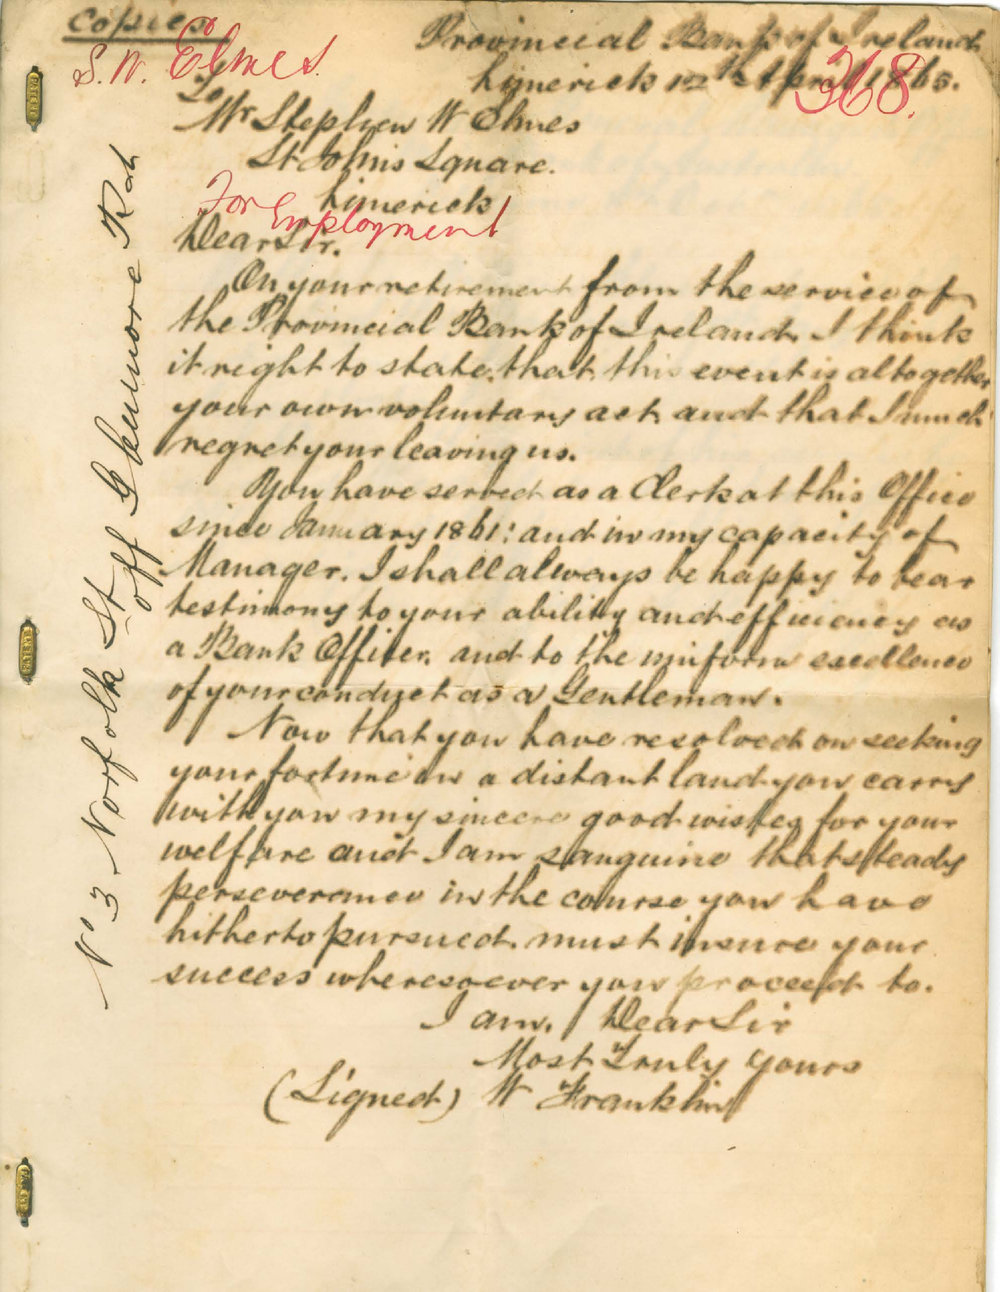 Copies
S. W. Elmes
Provincial Bank of Ireland
Limerick 12th April 1865.
368.
To
Mr Stephen W Elmes
St John's Square.
Limerick
For Employment
Dear Sir.
On your retirement from the service of
the Provincial Bank of Ireland, I think
it right to state, that, this event is altogether
your own voluntary act, and that I much
regret your leaving us.
You have served as a Clerk at this Office
since January 1861: and in my capacity of
Manager. I shall always be happy to bear
testimony to your ability and efficiency as
a Bank Officer, and to the uniform excellence
of your conduct as a Gentleman.
Now that you have resolved on seeking
your fortune in a distant land you carry
with you my sincere good wishes for your
welfare and I am sanguine that steady
perseverance in the course you have
hitherto pursued, must insure your
success wheresoever you proceed to.
I am, Dear Sir
Most Truly Yours
(Signed) W Franklin
No 3 Norfolk St
off Glenmore Rd